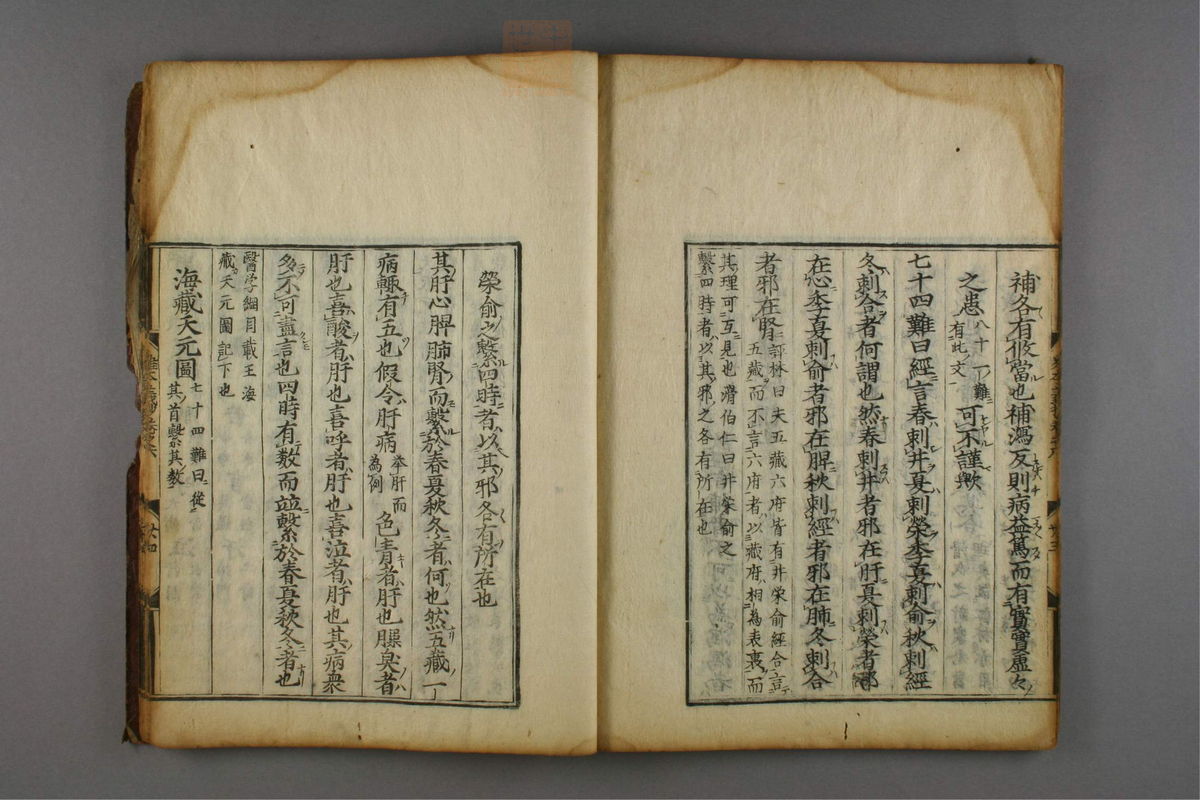 補各有攸當也補瀉反則病益篤而有實實虛々
之患八十一難有此文可不謹歟
七十四難曰經言春刺井夏刺榮季夏刺俞秋刺經
冬刺合者何謂也然春刺井者邪在肝夏刺榮者邪
在心季夏刺俞者邪在脾秋刺經者邪在肺冬刺合
者邪在腎評林曰夫五藏六府皆有井榮俞經合言
五藏而不言六府者以藏府相為表裏而
其理可互見也滑伯仁曰井榮俞之
繫四時者以其邪之各有所在也
榮俞之繫四時者以其邪各有所在也
其肝心脾肺腎而繫於春夏秋冬者何也然五藏一
病輙有五也假令肝病舉肝而為例色青者肝也臊臭者
肝也喜酸者肝也喜呼者肝也喜泣者肝也其病衆
多不可盡言也四時有数而並繫於春夏秋冬者也
醫学綱目載王海
藏天元圖記下也
海藏天元圖七十四難曰從
其首繫其数
廿三
廿四